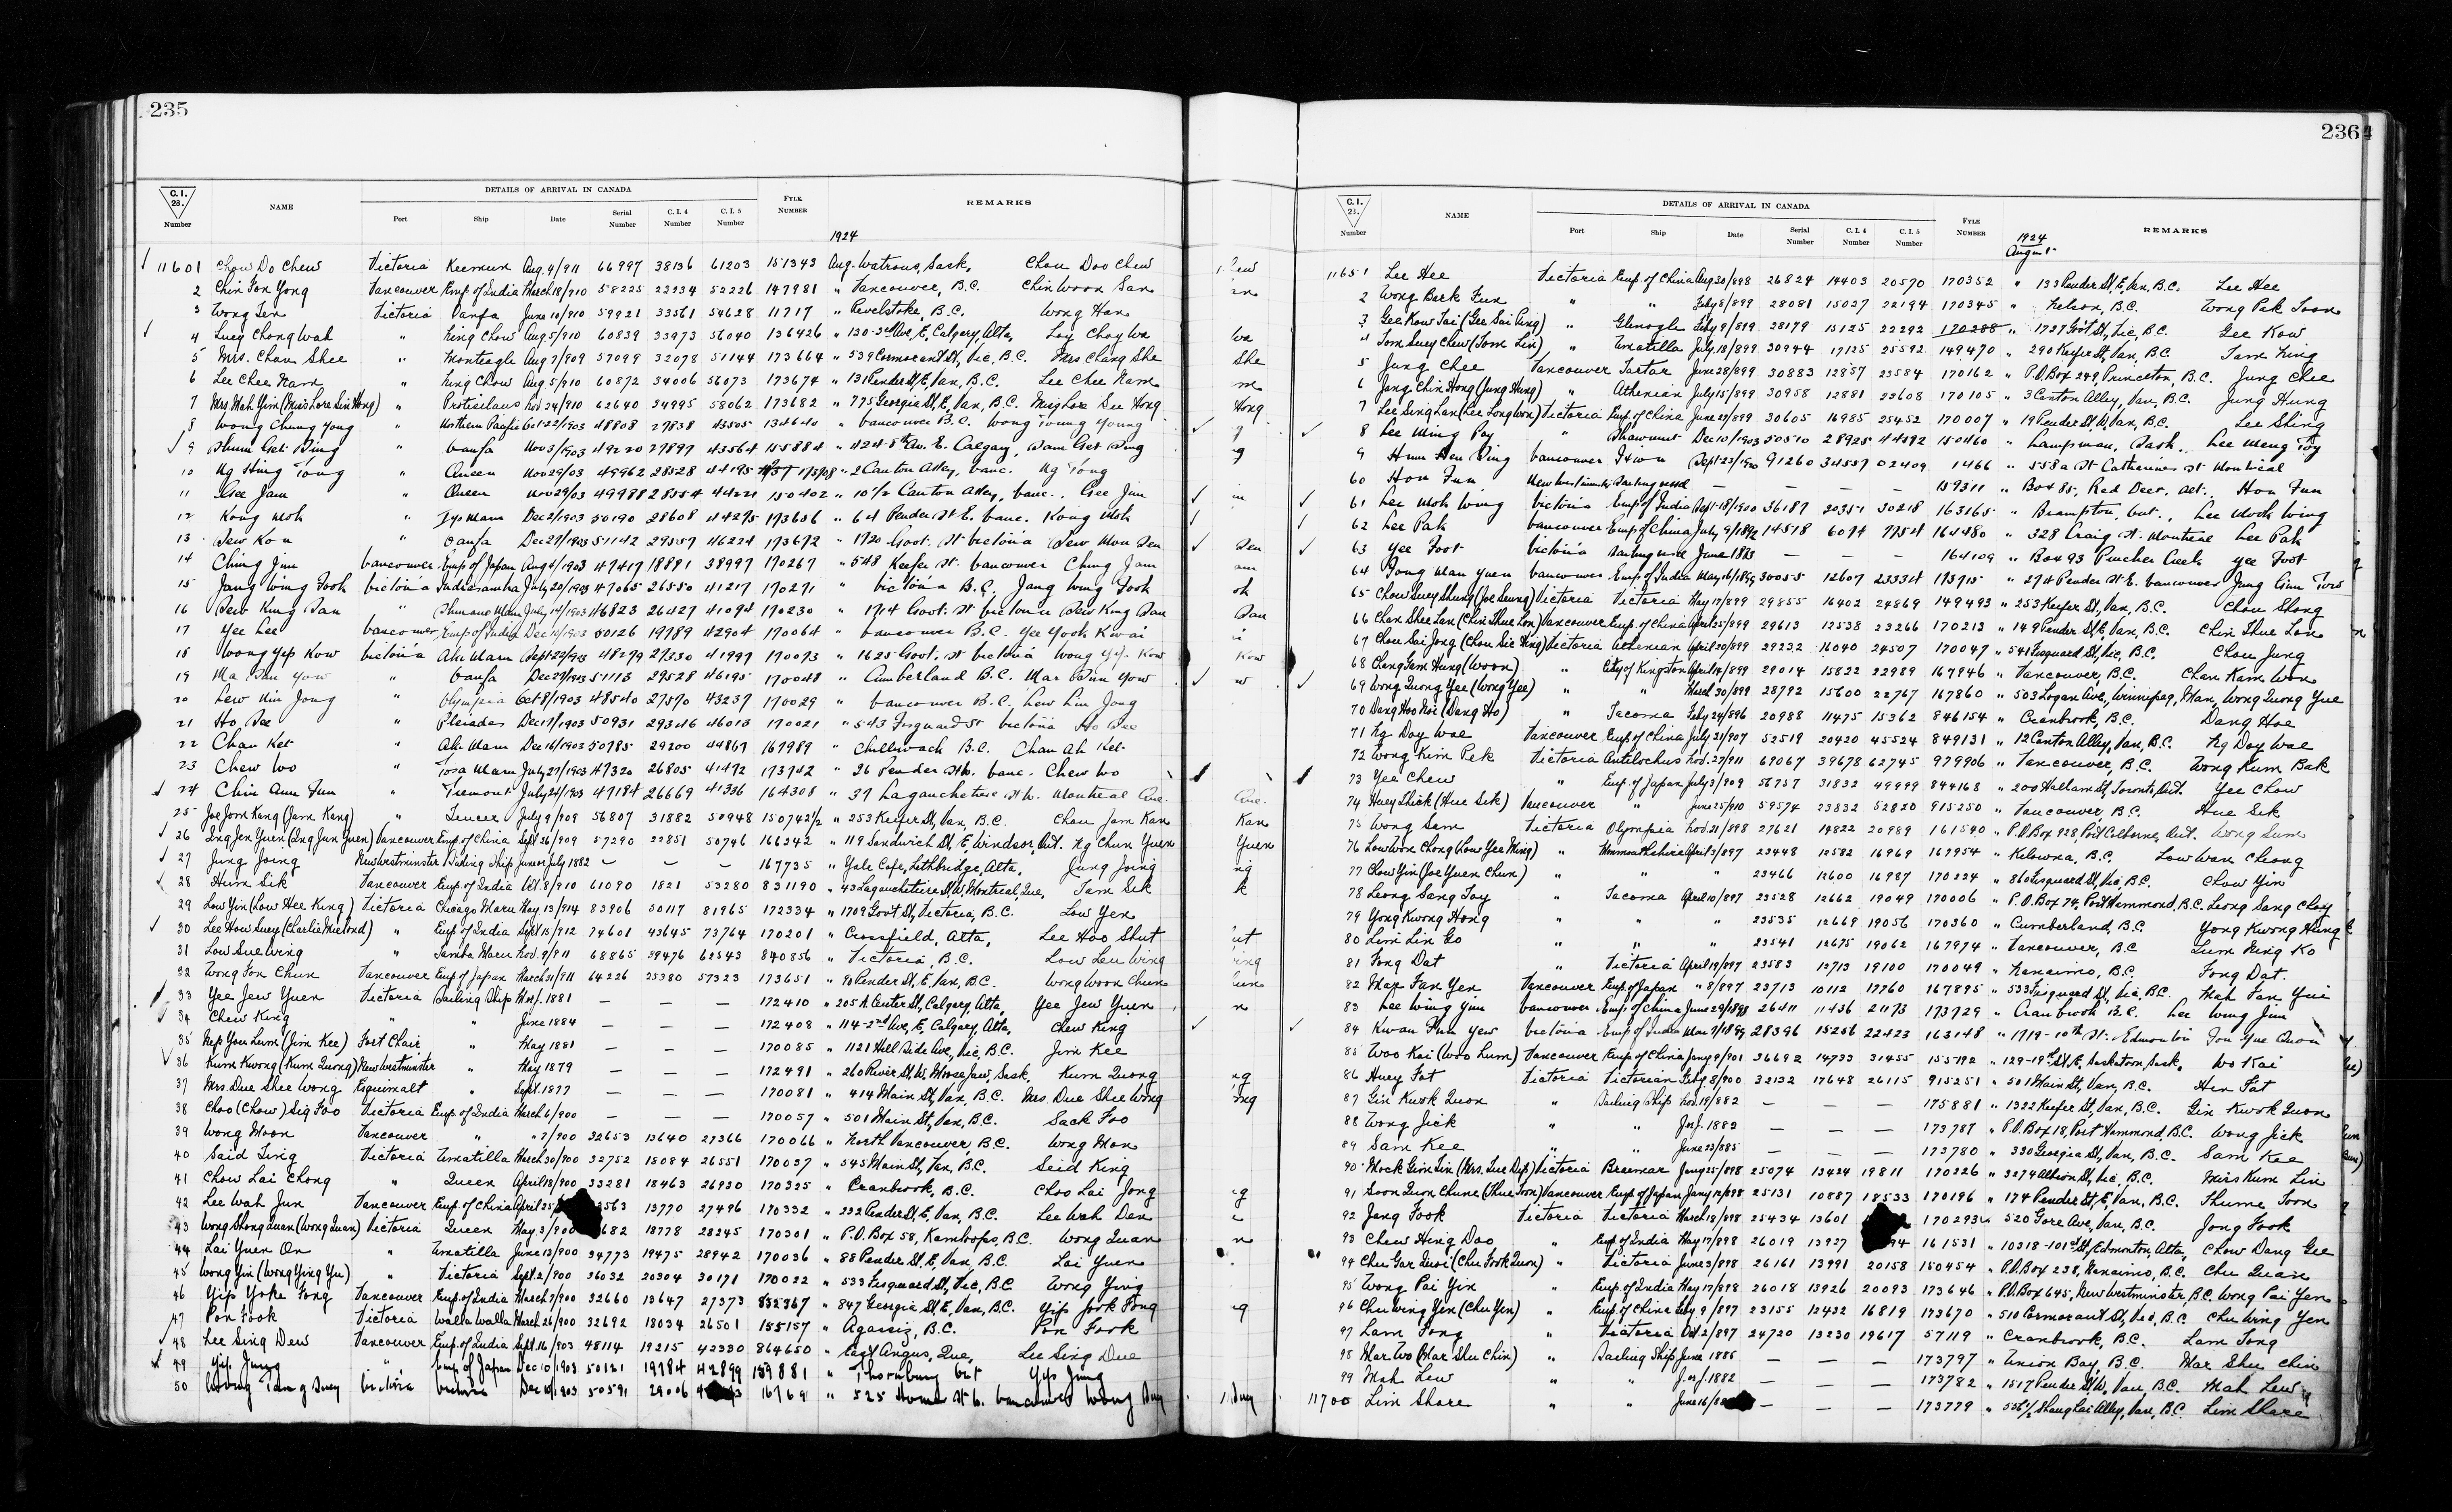 235
C.I. 28. Number NAME DETAILS OF ARRIVAL IN CANADA Port Ship Date Serial Number C.I.4 Number C.I.5 Number FYLE NUMBER REMARKS
1924
11601 Chow Do Chew Victoria Keemun Aug. 4/911 66997 38136 61203 151343 Aug. Watrous, Sask. Chou Doo Chew
2 Chin Fon Yong Vancouver Emp. of India March 18/910 58225 23234 52226 147981 " Vancouver, B.C. Chin Woon San
3 Wong Sen Victoria Oanfa June 10/910 59921 33561 54628 11717 " Revelstoke, B.C. Wong Han
4 Luey Chong Wah " Ning Chow Aug. 5/910 60839 33973 56040 136426 " 130-3rd Ave, E, Calgary, Alta, Loy Choy Wa
5 Mrs. Chan Shee " Monteagle Aug 7/909 57099 32078 51144 173664 " 539 Cormorant St, Vic, B.C. Mrs Chang She
6 Lee Chee Nam " Ning Chow Aug 5/910 60872 34006 56073 173674 " 131 Pender St, E, Van, B.C. Lee Chee Nam
7 Mrs. Mah Yim (Miss Lore Sin Hong) " Protisilaus Nov 24/910 62640 34995 58062 173682 " 775 Georgia St, E, Van, B.C. Miss Lore See Hong
8 Wong Chung Yong " Northern Pacific Oct 22/1903 48808 27838 43505 134640 " Vancouver B.C. Wong Young Young
9 Shum Get Sing " Oanfa Nov 3/1903 49220 27897 43564 155884 " 424-8th Av. E. Calgary, Sam Get Sing
10 Ng Hing Tong " Queen Nov 29/03 49962 28528 44195 " 2 Canton Alley, Vanc. Ng Tong
11 Gee Jam " Queen Nov 29/03 49988 28554 44221 150402 " 10½ Canton Alley, Vanc. Gee Jim
12 Kong Moh " Iyo Maru Dec 2/1903 50190 28608 44275 173656 " 64 Pender St E. Vanc. Kong Moh
13 Sew Kon " Oanfa Dec 27/1903 51142 29557 46224 173672 " 1720 Govt. St Victoria Sew Mon Sen
14 Ching Jim Vancouver Emp of Japan Aug 4/1903 47417 18891 38997 170267 " 548 Keefer St. Vancouver Ching Jam
15 Jang Wing Fooh Victoria Indrasamha July 20/1903 47065 26550 41217 170291 " Victoria B.C. Jang Wing Fooh
16 Sew King San " Shinano Maru July 14/1903 46823 26427 41094 170230 " 1714 Govt. St Victoria Sew King San
17 Yee Lee Vancouver Emp of India Dec 10/1903 50126 19789 42904 170064 " Vancouver B.C. Yee Yook Kwai
18 Wong Yip Kow Victoria Aki Maru Sept 22/903 48279 27330 41997 170073 " 1625 Govt. St Victoria Wong Yip Kow
19 Ma Shu Yow " Oanfa Dec 27/1903 51113 29528 46195 170048 " Cumberland B.C. Mar Shu Yow
20 Lew Kim Jong " Olympia Oct 8/1903 48540 27570 43237 170029 " Vancouver B.C. Lew Lim Jong
21 Ho See " Pleiades Dec 17/1903 50931 29346 46013 170021 " 543 Fisguard St Victoria Ho See
22 Chan Ket " Aki Maru Dec 16/1903 50785 29200 44867 167989 " Chilliwack B.C. Chan Ah Ket
23 Chew Wo " Tosa Maru July 27/1903 47320 26805 41472 173742 " 36 Pender St W. Vanc. Chew Wo
24 Chin Ann Fun " Tremont July 24/1903 47184 26669 41336 164308 " 37 Lagauchetiere St W. Montreal Que.
25 Joe Jorn Kang (Jarn Kang) " Teucer July 9/909 56807 31882 50948 150742½ " 253 Keefer St, Van, B.C. Chou Jam Kan
26 Ing Jen Yuen (Ing Jun Yuen) Vancouver Emp of China Sept 26/909 57290 22851 50746 166242 " 119 Sandwich St, E, Windsor, Ont. Ng Chun Yuen
27 Jung Joing New Westminster Sailing Ship June or July 1882 — — — 167735 " Yale Cafe, Lethbridge, Alta. Jung Joing
28 Hum Sik Vancouver Emp of India Oct. 8/910 61090 1821 53280 831190 " 43 Lagauchetiere St, W, Montreal, Que. Tam Sik
29 Low Yin (Low Hee King) Victoria Chicago Maru May 13/914 83906 50117 81965 172334 " 1709 Gov't St, Victoria, B.C. Low Yen
30 Lee How Suey (Charlie Mielond) " Emp of India Sept 15/912 74601 43645 73764 170201 " Crossfield, Alta, Lee Hoo Shut
31 Low Sue Wing " Tamba Maru Nov. 9/911 68865 39476 62543 840856 " Victoria, B.C. Low Lew Wing
32 Wong Fon Chun Vancouver Emp of Japan March 31/911 64226 25380 57323 173651 " 90 Pender St, E, Van, B.C. Wong Woon Chun
33 Yee Jew Yuen Victoria Sailing Ship M. or J. 1881 — — — 172410 " 205 A Centre St, Calgary, Alta, Yee Jew Yuen
34 Chew King " " June 1884 — — — 172408 " 114-2nd Ave, E, Calgary, Alta, Chew King
35 Nip You Lum (Jim Kee) Port Clair " May 1881 — — — 170085 " 1121 Hill Side Ave, Vic, B.C. Jim Kee
36 Kum Kwong (Kum Quong) New Westminster " May 1879 — — — 172491 " 260 River St, W, Moose Jaw, Sask. Kum Quong
37 Mrs. Due Shee Wong Esquimalt " Sept. 1877 — — — 170081 " 414 Main St, Van, B.C. Mrs. Due Shee Wong
38 Choo (Chow) Sig Foo Victoria Emp. of India March 6/900 — — — 170057 " 501 Main St, Van, B.C. Sack Foo
39 Wong Moon Vancouver " " 7/900 32653 13640 27366 170066 " North Vancouver, B.C. Wong Mon
40 Said Ling Victoria Umatilla March 30/900 32752 18084 26551 170037 " 545 Main St, Van, B.C. Seid King
41 Chow Lai Chong " Queen April 18/900 33281 18463 26930 170335 " Cranbrook, B.C. Choo Lai Jong
42 Lee Wah Jun Vancouver Emp. of China April 25/ 3563 13770 27496 170332 " 232 Pender St, E, Van, B.C. Lee Wah Den
43 Wong Shong Quan (Wong Quan) Victoria Queen May 3/900 682 18778 28245 170301 " P.O. Box 58, Kamloops, B.C. Wong Quan
44 Lai Yuen On " Umatilla June 13/900 34773 19475 28942 170036 " 88 Pender St, E, Van, B.C. Lai Yuen
45 Wong Yin (Wong Ying Yu) " Victoria Sept. 2/900 36032 20304 30171 170022 " 533 Fisguard St, Vic, B.C. Wong Ying
46 Yip Yoke Fong Vancouver Emp. of India March 7/900 32660 13647 27373 832367 " 847 Georgia St, E, Van, B.C. Yip Jook Fong
47 Pon Fook Victoria Walla Walla March 26/900 32692 18034 26501 155157 " Agassiz, B.C. Pon Fook
48 Lee Sing Dew Vancouver Emp. of India Sept. 16/903 48114 19215 42330 864650 " East Angus, Que, Lee Sing Due
49 Yip Jung " Emp of Japan Dec 10/1903 50121 19784 42899 159881 " Thornbury Ont Yip Jung
50 Wong Tang Suey Victoria Victoria Dec 10/1903 50591 29006 16769 " 525 Homer St W. Vancouver Wong Suey
2364
C.I. 28. Number NAME DETAILS OF ARRIVAL IN CANADA Port Ship Date Serial Number C.I.4 Number C.I.5 Number FYLE NUMBER REMARKS
1924
August
11651 Lee Hee Victoria Emp. of China Aug 30/898 26824 14403 20570 170352 " 133 Pender St, E, Van, B.C. Lee Hee
2 Wong Back Fun " " July 8/899 28081 15027 22194 170345 " Nelson, B.C. Wong Pak Foon
3 Gee Kow Tai (Gee Sai Ping) " Glenogle July 9/899 28179 15125 22292 170288 " 1727 Gov't St, Vic, B.C. Gee Kow
4 Tom Suey Chew (Tom Lin) " Umatilla July 18/899 30944 17125 25592 149470 " 290 Keefer St, Van, B.C. Tam King
5 Jung Chee Vancouver Tartar June 28/899 30883 12857 23584 170162 " P.O. Box 249, Princeton, B.C. Jung Chee
6 Jang Chin Hong (Jung Hung) " Athenian July 15/899 30958 12881 23608 170105 " 3 Canton Alley, Van, B.C. Jung Hung
7 Lee Sing Lan (Lee Long Won) Victoria Emp. of China June 22/899 30605 16985 25452 170007 " 19 Pender St, W, Van, B.C. Lee Shing
8 Lee Ming Poy " Shawmut Dec 10/1903 50510 28925 44592 150460 " Lampman, Sask. Lee Meng Poy
9 Hum Hen Sing Vancouver Ixion Sept 23/ 91260 34557 02409 1466 " 558a St Catherines St Montreal
60 Hon Fun New Westminster Sailing vessel — — — — 159311 " Box 85, Red Deer, Alt. Hon Fun
61 Lee Moh Wing Victoria Emp of India Sept 18/1900 36187 20351 30218 163165 " Brampton, Ont., Lee Mooh Wing
62 Lee Pak Vancouver Emp of China July 9/1892 14518 6074 7754 164480 " 328 Craig St. Montreal Lee Pak
63 Yee Foot Victoria Sailing vessel June 1883 — — — 164109 " Box 93 Pincher Creek Yee Foot
64 Jong Man Yuen Vancouver Emp of India May 16/1899 30055 12607 23334 173715 " 274 Pender St E. Vancouver Jung Gum Tow
65 Chow Suey Shung (Joe Seung) Victoria Victoria May 17/899 29855 16402 24869 149493 " 253 Keefer St, Van, B.C. Chou Shong
66 Chan Shee Lan (Chin Thue Lon) Vancouver Emp. of China April 25/899 29613 12538 23266 170213 " 149 Pender St, E, Van, B.C. Chin Thue Lon
67 Chou Sai Jong (Chou Sie Hing) Victoria Athenian April 20/899 29232 16040 24507 170047 " 541 Fisguard St, Vic, B.C. Chou Jung
68 Cheng Tem Hung (Woon) " City of Kingston April 14/899 29014 15822 22989 167946 " Vancouver, B.C. Chan Kam Won
69 Wong Quong Yee (Wong Yee) " " March 30/899 28792 15600 22767 167860 " 503 Logan Ave, Winnipeg, Man, Wong Quong Yue
70 Dang Hoo Noi (Dang Ho) " Tacoma Feb'y 24/896 20988 11475 15362 846154 " Cranbrook, B.C. Dang Hoe
71 Ng Doy Wae Vancouver Emp of China July 21/907 52519 20420 45524 849131 " 12 Canton Alley, Van, B.C. Ng Doy Wae
72 Wong Kim Pek Victoria Antilochus Nov. 27/911 69067 39678 62745 979906 " Vancouver, B.C. Wong Kum Bak
73 Yee Chew " Emp of Japan July 3/909 56757 31832 49999 844168 " 200 Hallam St, Toronto, Ont. Yee Chow
74 Huey Shick (Hue Sik) Vancouver " June 25/910 59574 23832 52820 915250 " Vancouver, B.C. Hue Sik
75 Wong Sam Victoria Olympia Nov. 21/898 27621 14822 20989 161540 " P.O. Box 928, Port Colborne, Ont. Wong Sum
76 Low Won Chong (Low Yee Ming) " Monmouthshire April 3/897 23448 12582 16969 167954 " Kelowna, B.C. Low Wan Cheong
77 Chow Yin (Joe Yuen Chun) " " " 23466 12600 16987 170224 " 860 Fisguard St, Vic, B.C. Chow Yin
78 Leong Sang Toy " Tacoma April 10/897 23528 12662 19049 170006 " P.O. Box 74, Port Hammond, B.C. Leong Sang Choy
79 Yong Kwong Hong " " " 23535 12669 19056 170360 " Cumberland, B.C. Yong Kwong Hung
80 Lim Lin Go " " " 23541 12675 19062 167974 " Vancouver, B.C. Lum Ning Ko
81 Fong Dat " Victoria April 19/897 23583 12713 19100 170049 " Nanaimo, B.C. Fong Dat.
82 Mar Fan Yen Vancouver Emp. of Japan " 8/897 23713 10112 17760 167895 " 533 Fisguard St, Vic, B.C. Mah Fan Yui
83 Lee Wing Yim Vancouver Emp. of China June 29/1898 26411 11436 21173 173729 " Cranbrook B.C. Lee Wing Jim
84 Kwan Fun Yew Victoria Emp of India Mar 7/1899 28396 15256 22423 163148 " 1719-10th St. Edmonton Fon Yue Quon
85 Woo Kai (Woo Lum) Vancouver Emp of China Jany 9/901 36692 14733 31455 155792 " 129-19th St, E, Saskatoon, Sask. Wo Kai
86 Huey Fat Victoria Victorian Feby. 8/900 32132 17648 26115 915251 " 501 Main St, Van, B.C. Hin Fat
87 Gin Kwok Quon " Sailing Ship Nov. 19/882 — — — 175881 " 1322 Keefer St, Van, B.C. Gin Kwok Quon
88 Wong Jick " " J. or J. 1882 — — — 173787 " P.O. Box 18, Port Hammond, B.C. Wong Jick
89 Sam Kee " " June 23/885 — — — 173780 " 330 Georgia St, Van, B.C. Sam Kee
90 Mock Gim Lin (Mrs. Lue Dip) Victoria Braemar Jany 25/898 25074 13424 19811 170226 " 3274 Albion St, Vic, B.C. Miss Kum Lin
91 Soon Quon Chune (Thue Toon) Vancouver Emp. of Japan Jany 12/898 25131 10887 18533 170196 " 174 Pender St, E, Van, B.C. Thume Toon
92 Jang Fook Victoria Victoria March 18/898 25434 13601 170293 " 520 Gore Ave, Van, B.C. Jong Fook
93 Chew Hing Doo " Emp of India May 17/898 26019 13927 94 161531 " 10318-101st St, Edmonton, Alta. Chow Dang Gee
94 Chu Gar Quoi (Chu Fook Quon) " Victoria June 3/898 26161 13991 20158 150454 " P.O. Box 238, Nanaimo, B.C. Chu Quan
95 Wong Pai Yin " Emp. of India May 17/898 26018 13926 20093 173646 " P.O. Box 645, New Westminster, B.C. Wong Pai Yen
96 Chu Wing Yin (Chu Yen) " Emp. of China Feb'y 9/897 23155 12432 16819 173670 " 510 Cormorant St, Vic, B.C. Chu Wing Yen
97 Lam Tong " Victoria Oct. 2/897 24720 13230 19617 57119 " Cranbrook, B.C. Lam Tong
98 Mar Wo (Mar Shu Chin) " Sailing Ship June 1886 — — — 173797 " Union Bay, B.C. Mar Shu Chin
99 Mah Lew " " J. or J. 1882 — — — 173782 " 1517 Pender St, W, Van, B.C. Mah Lew
11700 Lim Share " " June 16/88 — — — 173779 " 536½ Shanghai Alley, Van, B.C. Lim Share